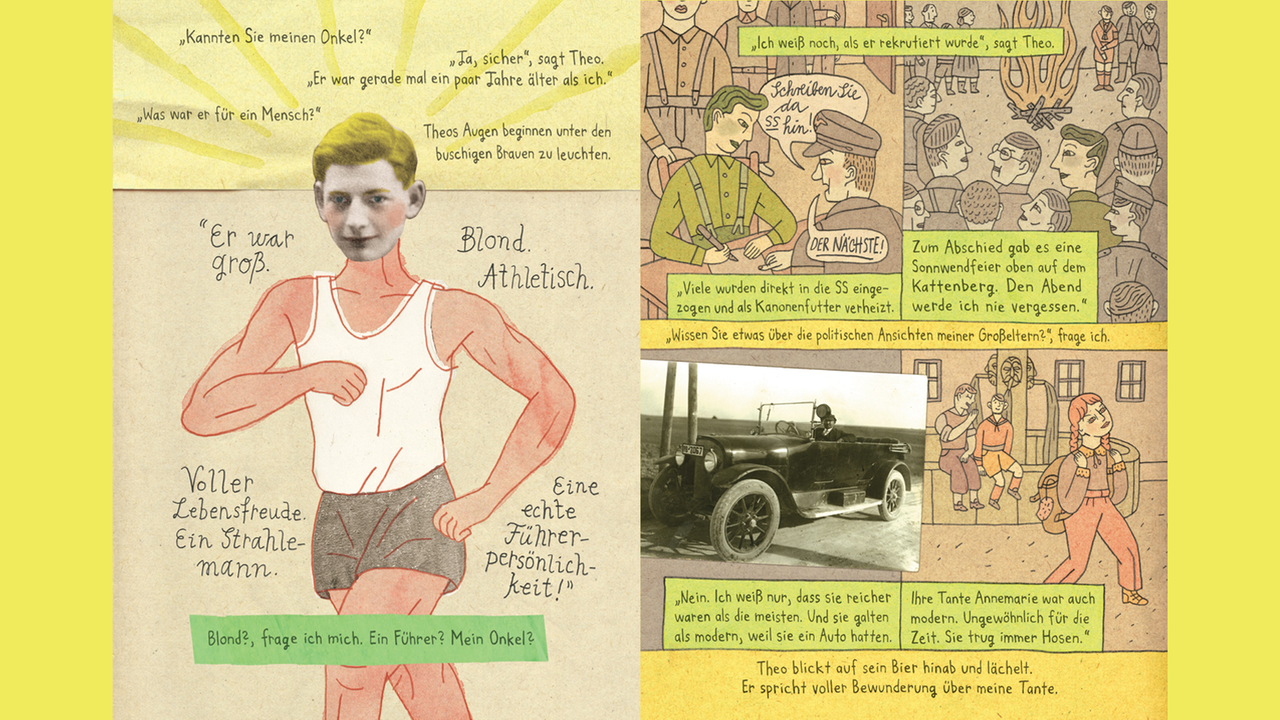 „Kannten Sie meinen Onkel?“
„Ja, sicher“, sagt Theo.
„Er war gerade mal ein paar Jahre älter als ich.“
„Was war er für ein Mensch?“
Theos Augen beginnen unter den
buschigen Brauen zu leuchten.
“Er war
groß.
Blond.
Athletisch.
Voller
Lebensfreude.
Ein Strahle-
mann.
Eine
echte
Führer-
persönlich-
keit!”
Blond?, frage ich mich. Ein Führer? Mein Onkel?
„Ich weiß noch, als er rekrutiert wurde“, sagt Theo.
Schreiben Sie
da
SS
hin!
DER NÄCHSTE!
„Viele wurden direkt in die SS einge-
zogen und als Kanonenfutter verheizt.
Zum Abschied gab es eine
Sonnwendfeier oben auf dem
Kattenberg. Den Abend
werde ich nie vergessen.“
„Wissen Sie etwas über die politischen Ansichten meiner Großeltern?“, frage ich.
„Nein. Ich weiß nur, dass sie reicher
waren als die meisten. Und sie galten
als modern, weil sie ein Auto hatten.
Ihre Tante Annemarie war auch
modern. Ungewöhnlich für die
Zeit. Sie trug immer Hosen.“
Theo blickt auf sein Bier hinab und lächelt.
Er spricht voller Bewunderung über meine Tante.